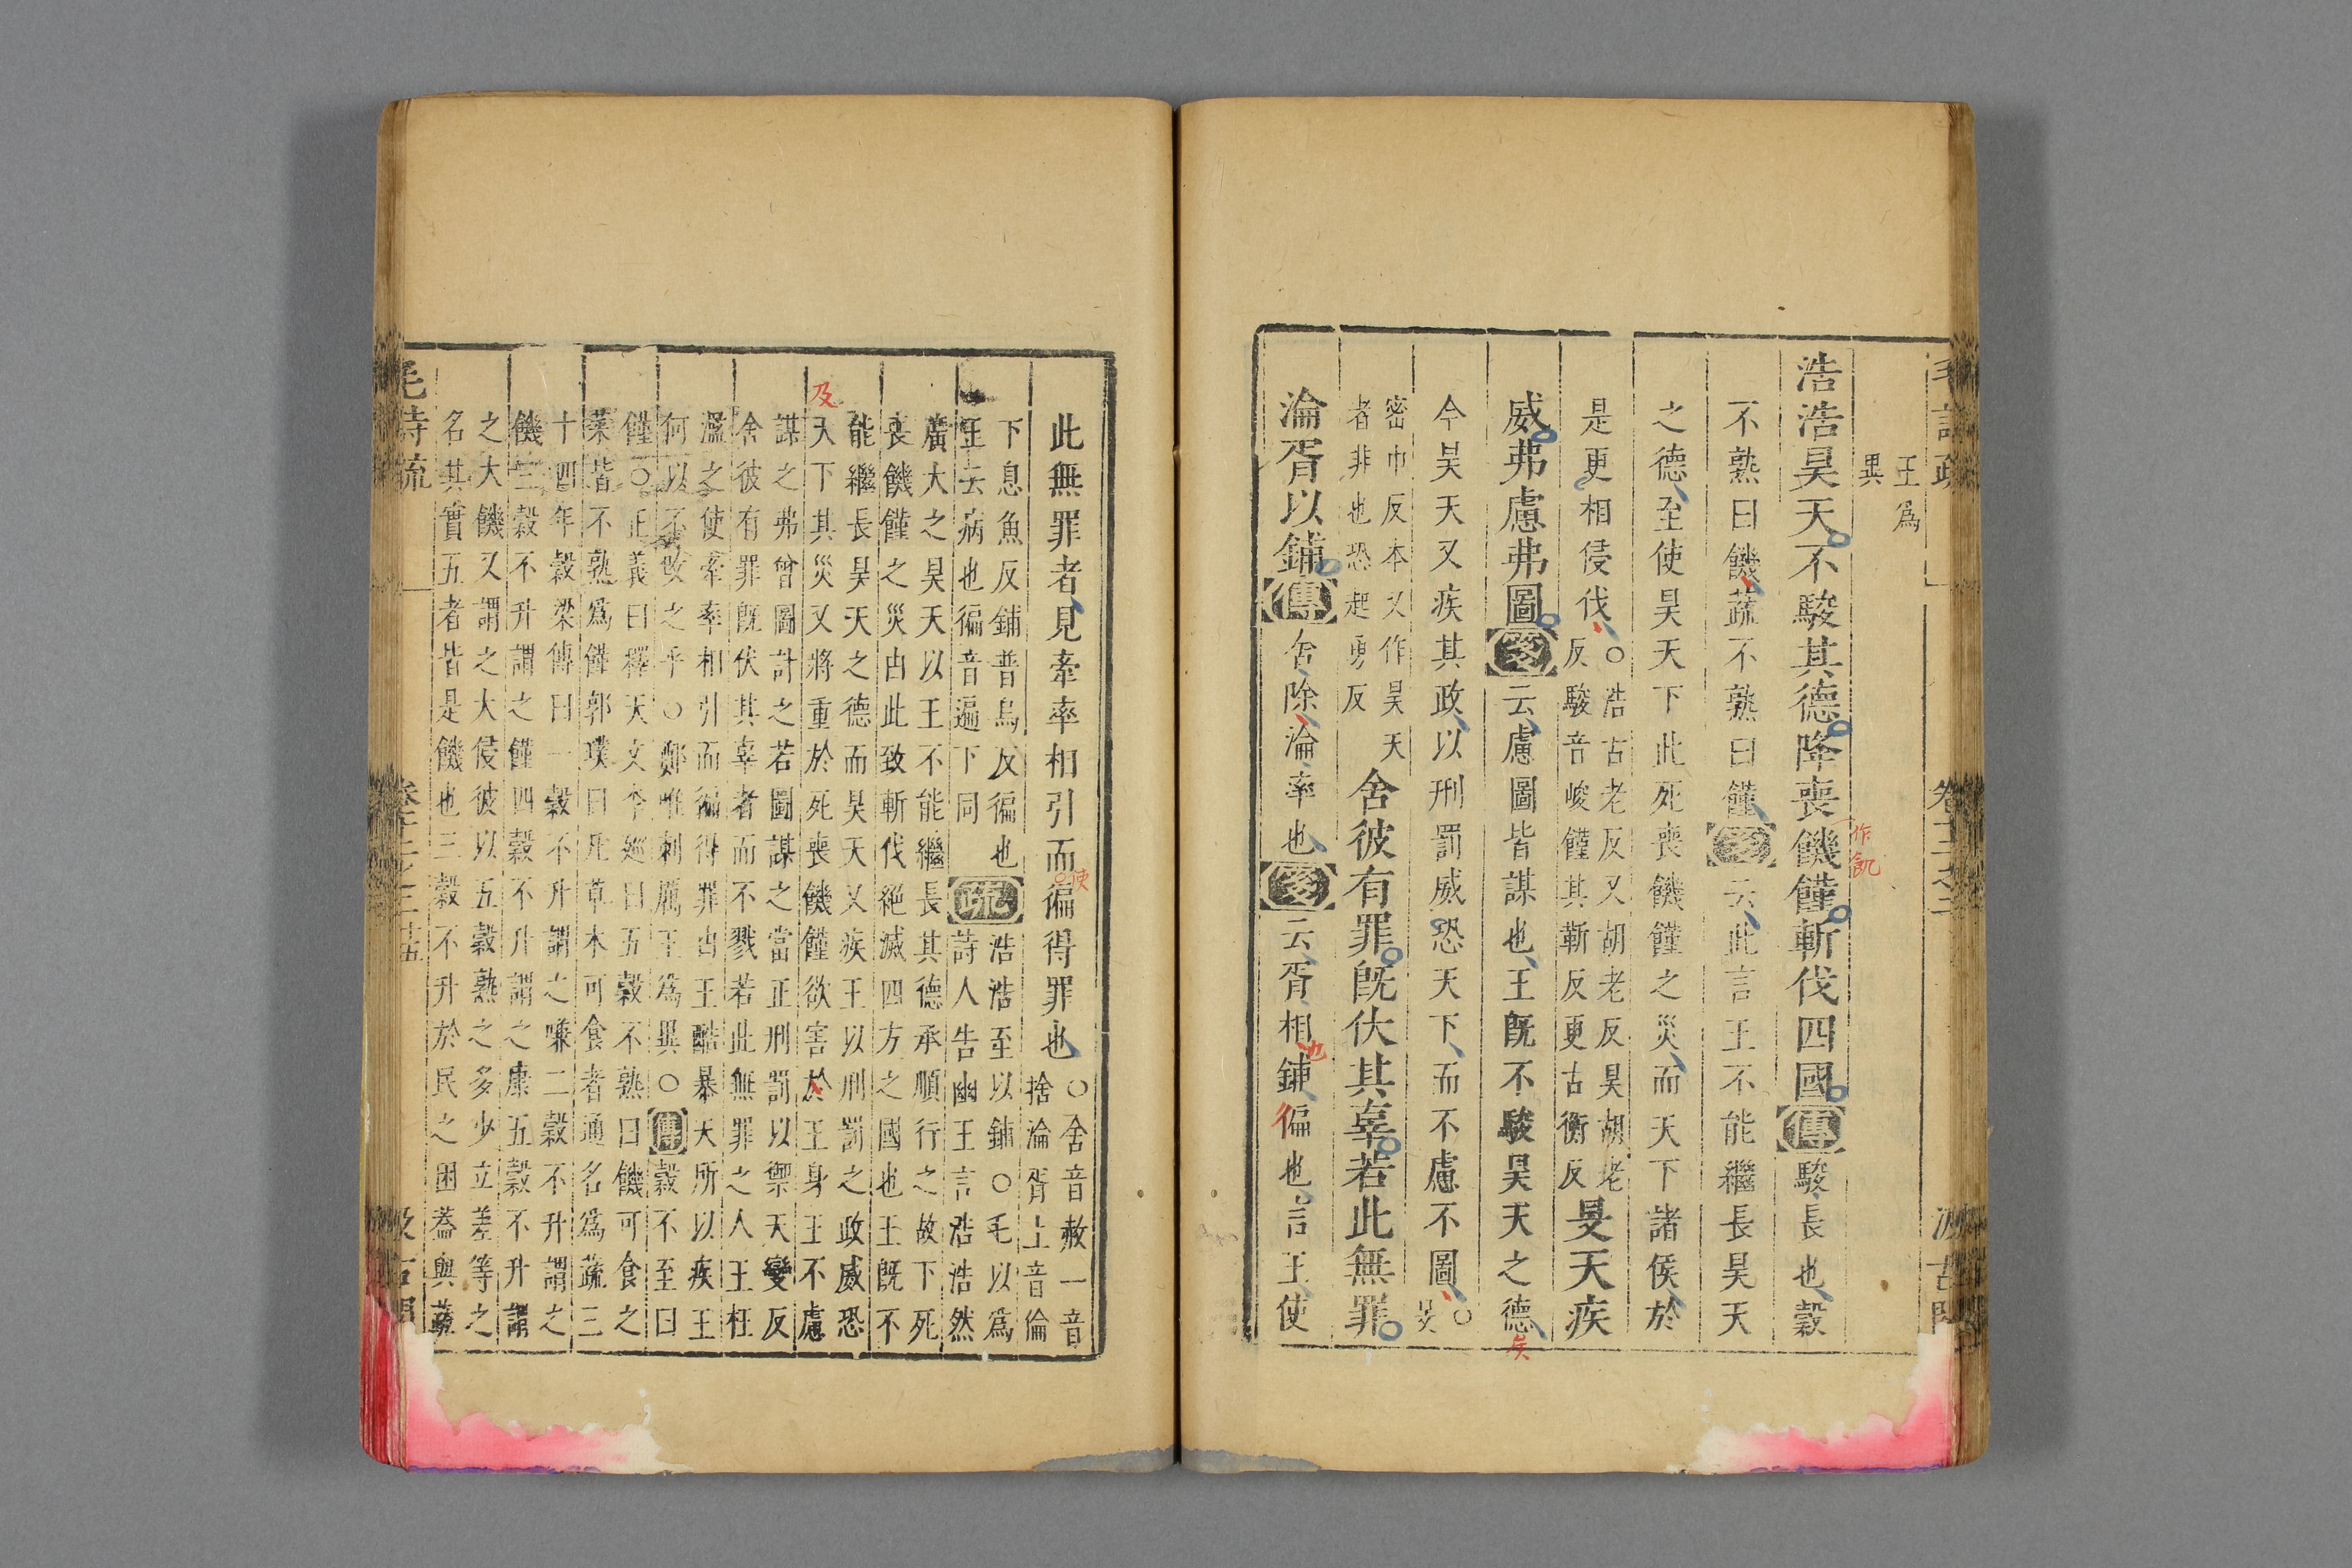 毛詩疏
卷十二之二
汲古閣
王爲
異
浩浩昊天不駿其德降喪饑饉斬伐四國傳駿長也穀
作飢
不熟曰饑蔬不熟曰饉箋云此言王不能繼長昊天
之德至使昊天下此死喪饑饉之災而天下諸侯於
是更相侵伐○浩古老反又胡老反昊胡老
反駿音峻饉其靳反更古衡反
旻天疾
威弗慮弗圖箋云慮圖皆謀也王旣不駿昊天之德
矣
今昊天又疾其政以刑罰威恐天下而不慮不圖○
旻
密巾反本又作昊天
者非也恐起勇反
舍彼有罪旣伏其辜若此無罪
淪胥以鋪傳舍除淪率也箋云胥相鋪徧也言王使
也
此無罪者見牽率相引而徧得罪也○舍音赦一音
使
捨淪胥上音倫
下息魚反鋪普烏反徧也
王云病也徧音遍下同
疏浩浩至以鋪○毛以爲
詩人告幽王言浩浩然
廣大之昊天以王不能繼長其德承順行之故下死
喪饑饉之災由此致斬伐絕滅四方之國也王旣不
能繼長昊天之德而昊天又疾王以刑罰之政威恐
及
天下其災又將重於死喪饑饉欲害於王身王不慮
謀之弗曾圖計之若圖謀之當正刑罰以禦天變反
舍彼有罪旣伏其辜者而不戮若此無罪之人王枉
濫之使牽率相引而徧得罪由王酷暴天所以疾王
何以不改之乎○鄭唯刺厲王爲異○傳穀不至曰
饉○正義曰釋天文李巡曰五穀不熟曰饑可食之
菜皆不熟爲饉郭璞曰凡草木可食者通名爲蔬三
十四年穀梁傳曰一穀不升謂之嗛二穀不升謂之
饑三穀不升謂之饉四穀不升謂之康五穀不升謂
之大饑又謂之大侵彼以五穀熟之多少立差等之
名其實五者皆是饑也三穀不升於民之困蓋與蔬
毛詩疏
卷十二之二
汲古閣